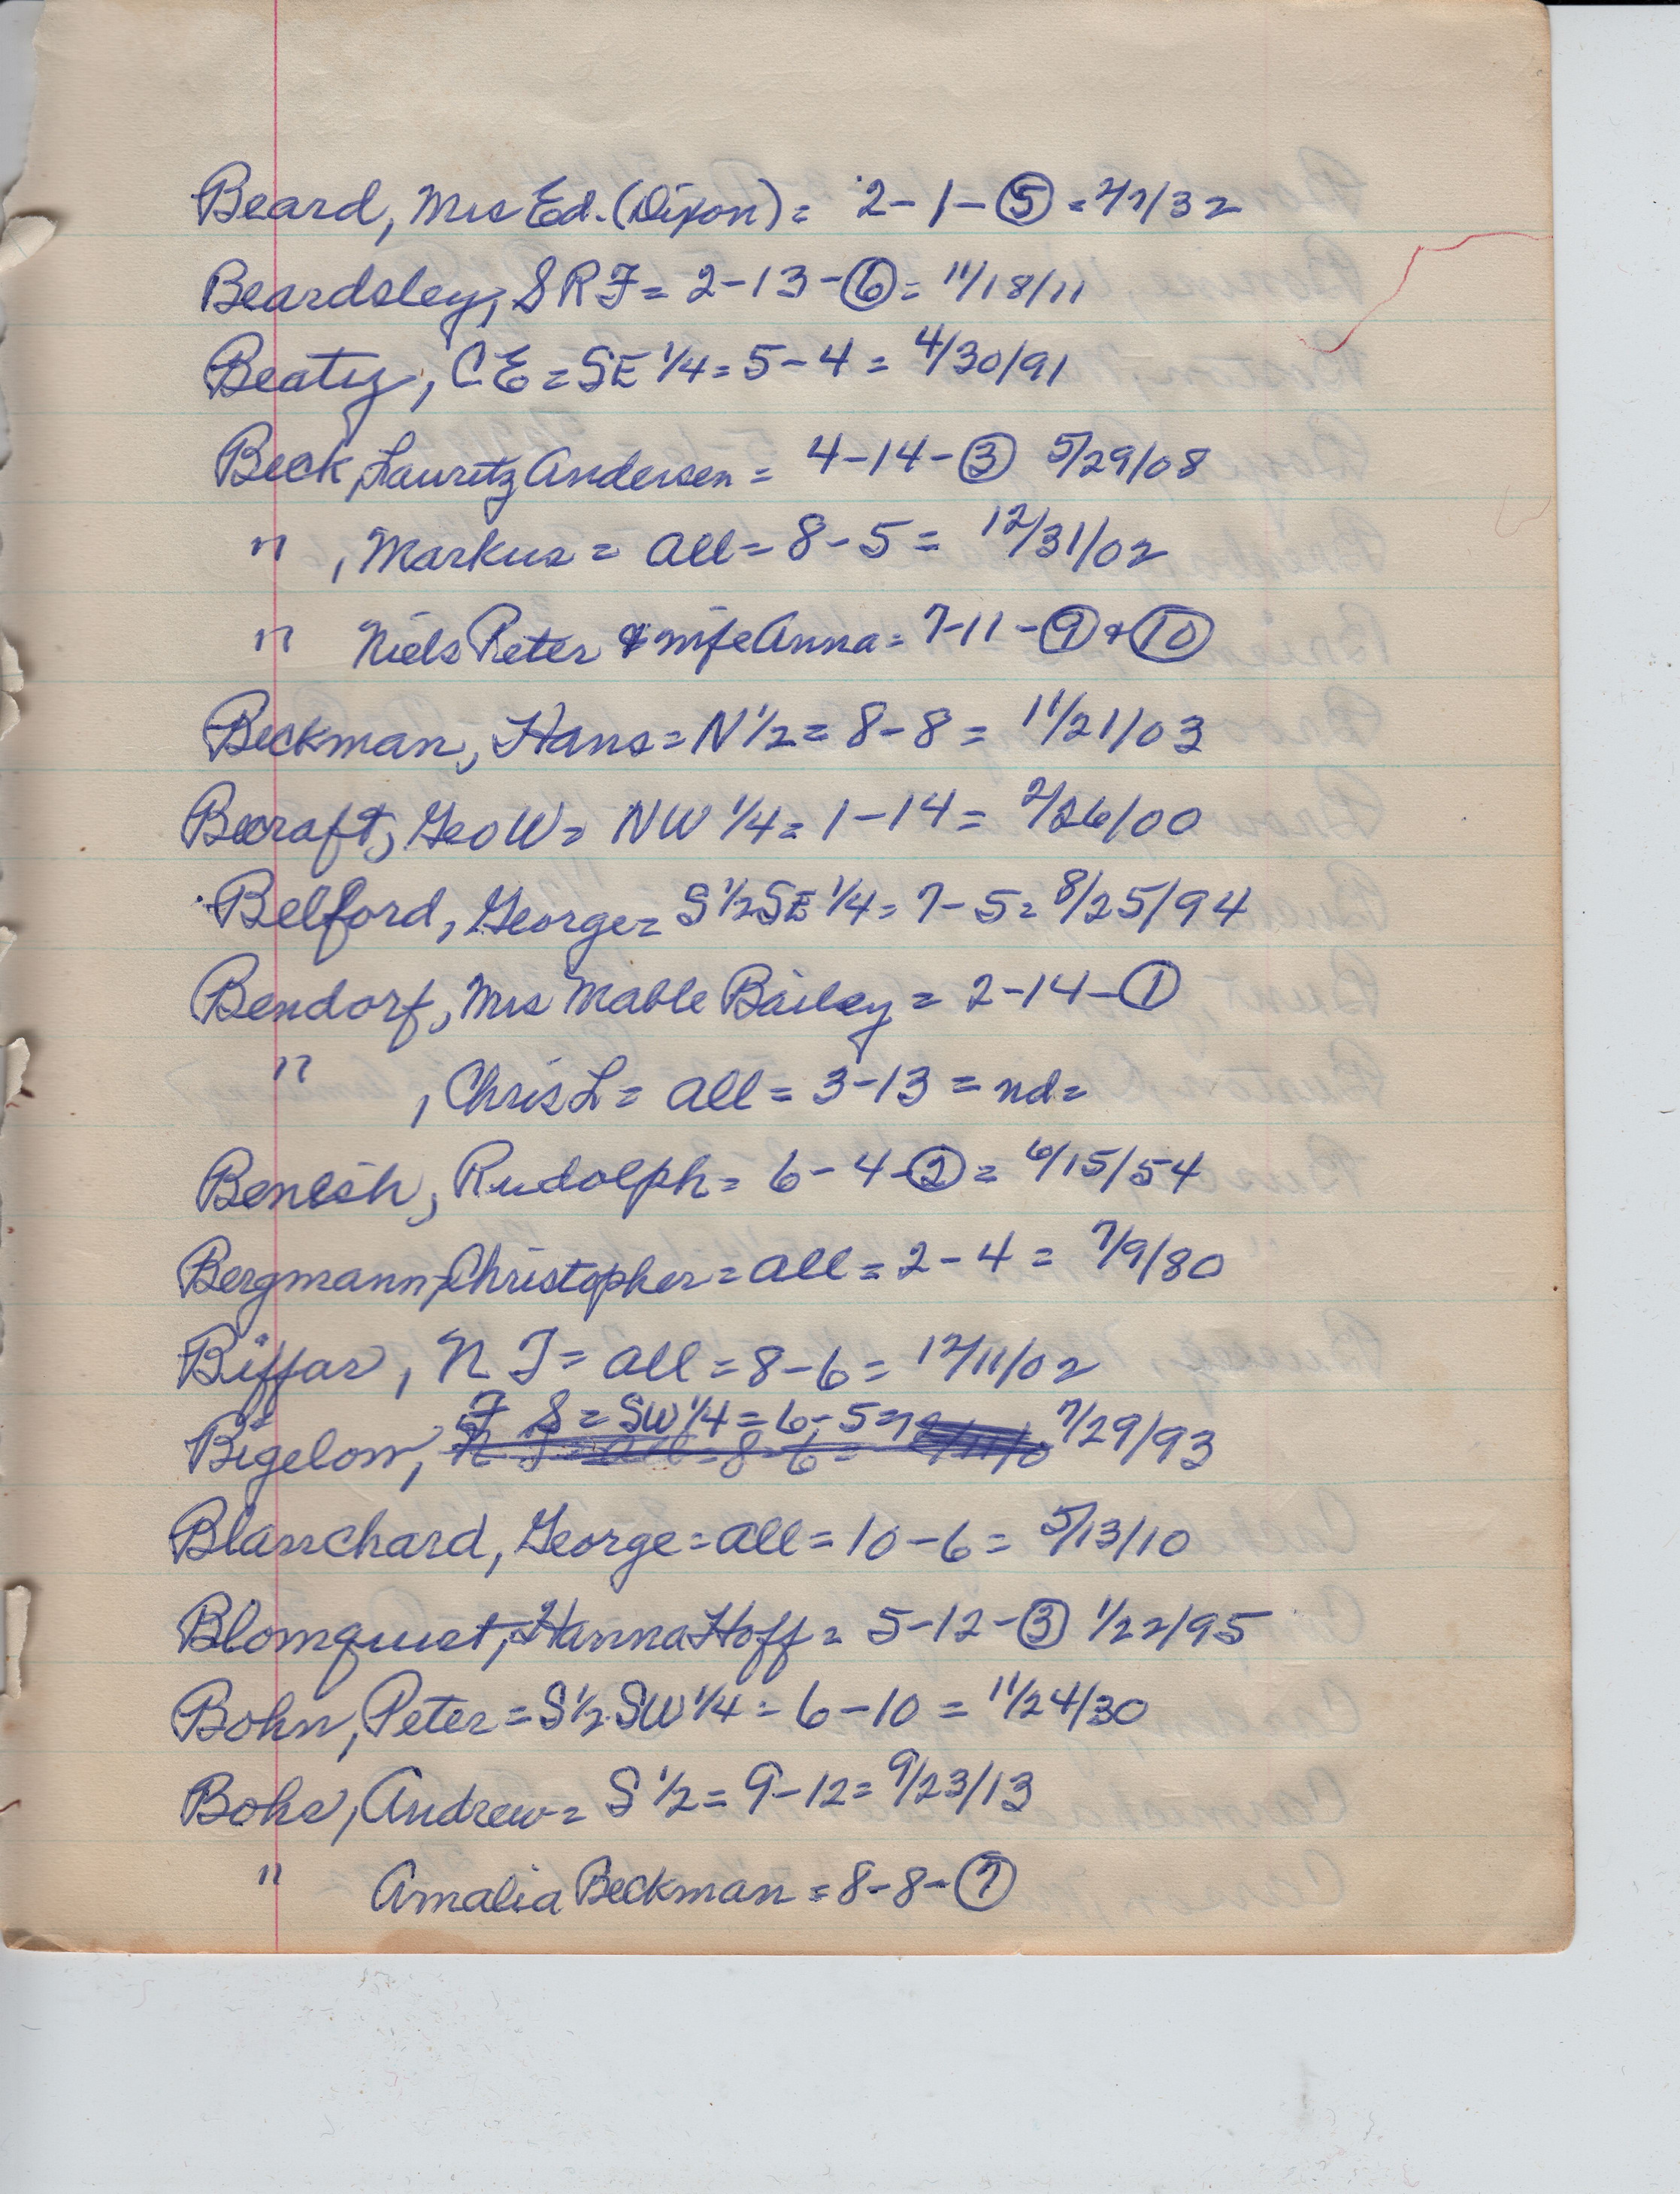 Beard, Mrs Ed. (Dixon) = 2-1-⑤ = 2/2/32
Beardsley, S R F = 2-13-⑥ = 11/18/11
Beaty, C E = SE 1/4 = 5-4 = 4/30/91
Beck, Lauretz Andersen = 4-14-③ 5/29/08
" , Markus = all = 8-5 = 12/31/02
" Niels Peter & wife Anna = 7-11-⑨ & ⑩
Beckman, Hans = N 1/2 = 8-8 = 11/21/03
Becraft, Geo W = NW 1/4 = 1-14 = 2/26/00
Belford, George = S 1/2 SE 1/4 = 7-5 = 8/25/94
Bendorf, Mrs Mable Bailey = 2-14-①
" , Chris L = all = 3-13 = nd =
Benish, Rudolph = 6-4-② = 6/15/54
Bergmann, Christopher = all = 2-4 = 7/9/80
Biffar, N J = all = 8-6 = 12/11/02
Bigelow, F S = SW 1/4 = 6-5 = 7/29/93
Blanchard, George = all = 10-6 = 5/13/10
Blomquist, Hanna Hoff = 5-12-③ 1/22/95
Bohn, Peter = S 1/2 SW 1/4 = 6-10 = 11/24/30
Bohs, Andrew = S 1/2 = 9-12 = 9/23/13
" Amalia Beckman = 8-8-⑦